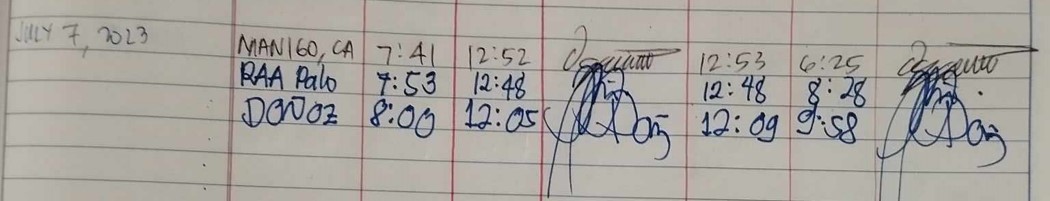 JULY 7, 2023
MANIGO, CA 7:41 12:52 12:53 6:25
RAA Palo 7:53 12:48 12:48 8:28
DOÑOZ 8:00 12:05 12:09 9:58